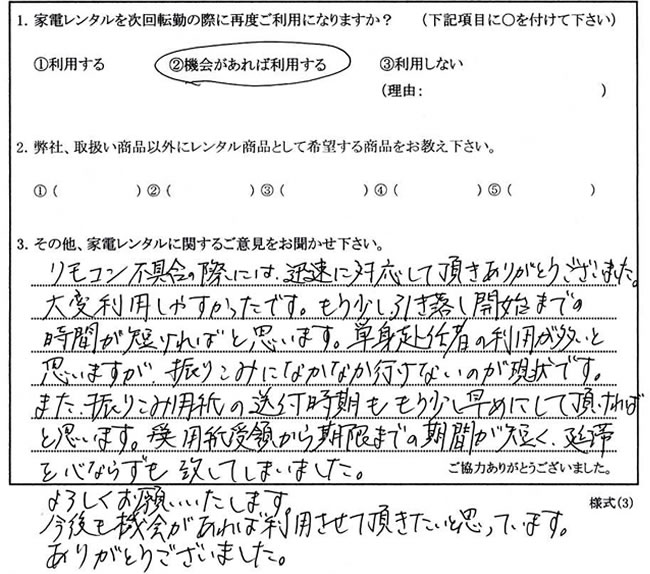 1. 家電レンタルを次回転勤の際に再度ご利用になりますか？ （下記項目に○を付けて下さい）
①利用する ②機会があれば利用する ③利用しない
（理由： ）
2. 弊社、取扱い商品以外にレンタル商品として希望する商品をお教え下さい。
①（ ）②（ ）③（ ）④（ ）⑤（ ）
3. その他、家電レンタルに関するご意見をお聞かせ下さい。
リモコン不具合の際には、迅速に対応して頂きありがとうございました。
大変利用しやすかったです。もう少し引き落し開始までの
時間が短ければと思います。単身赴任者の利用が多いと
思いますが、振りこみになかなか行けないのが現状です。
また、振りこみ用紙の送付時期ももう少し早めにして頂ければ
と思います。用紙受領から期限までの期間が短く、延滞
を心ならずも致してしまいました。
ご協力ありがとうございました。
よろしくお願いいたします。
様式(3)
今後も機会があれば利用させて頂きたいと思っています。
ありがとうございました。